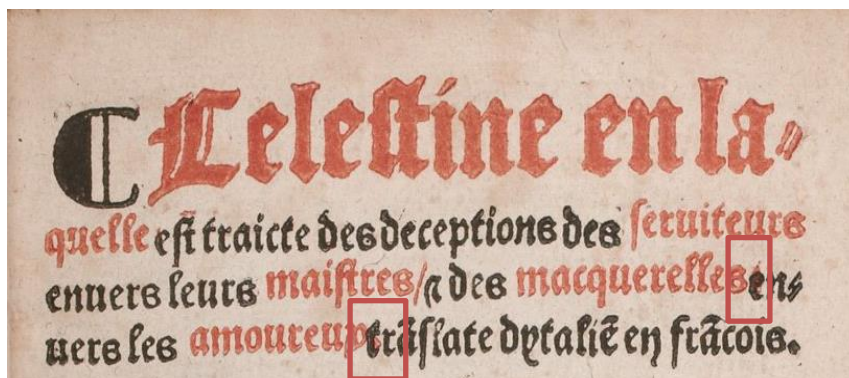 ¶ Celestine en la⸗
quelle est traicte des deceptions des seruiteurs
enuers leurs maistres/ ⁊ des macquerelles en⸗
uers les amoureux trãslate dytaliẽ en frãcois.